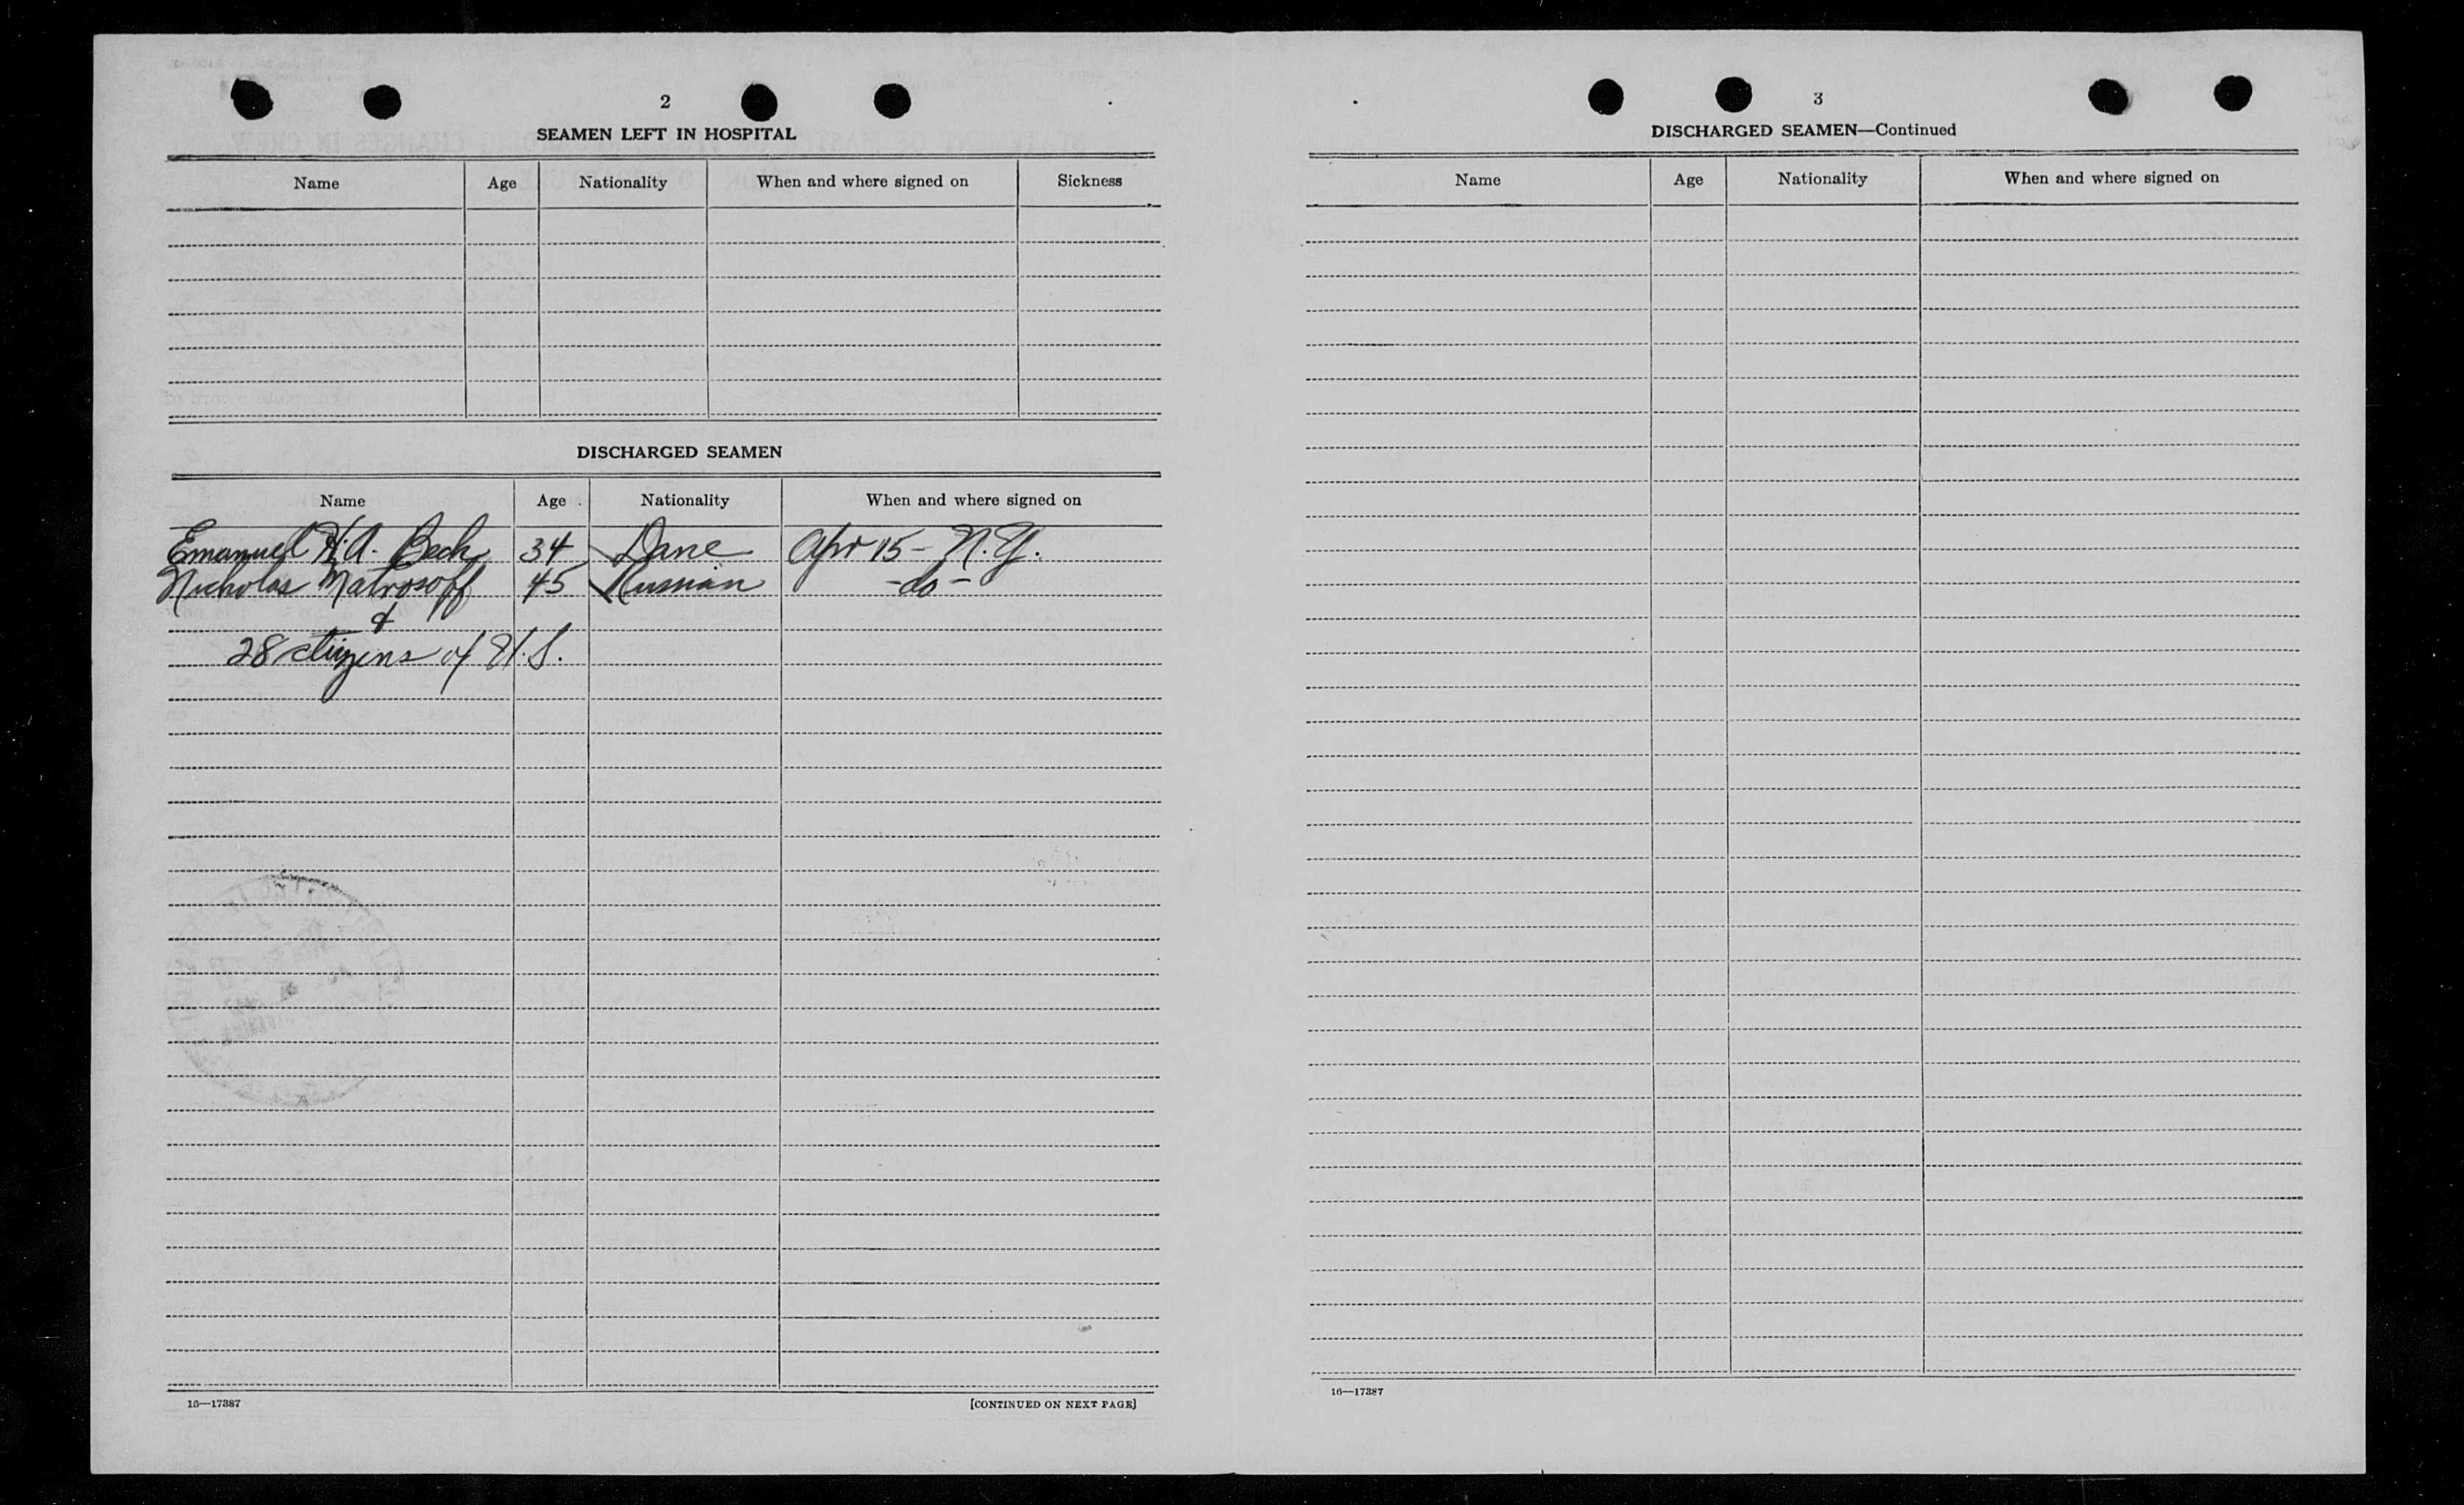 2
SEAMEN LEFT IN HOSPITAL
Name Age Nationality When and where signed on Sickness
DISCHARGED SEAMEN
Name Age Nationality When and where signed on
Emanuel H. A. Beck 34 Dane Apr 15 - N.Y.
Nicholas Matrosoff 45 Russian - do -
&
28 citizens of U.S.
16—17387 [CONTINUED ON NEXT PAGE]
3
DISCHARGED SEAMEN—Continued
Name Age Nationality When and where signed on
16—17387